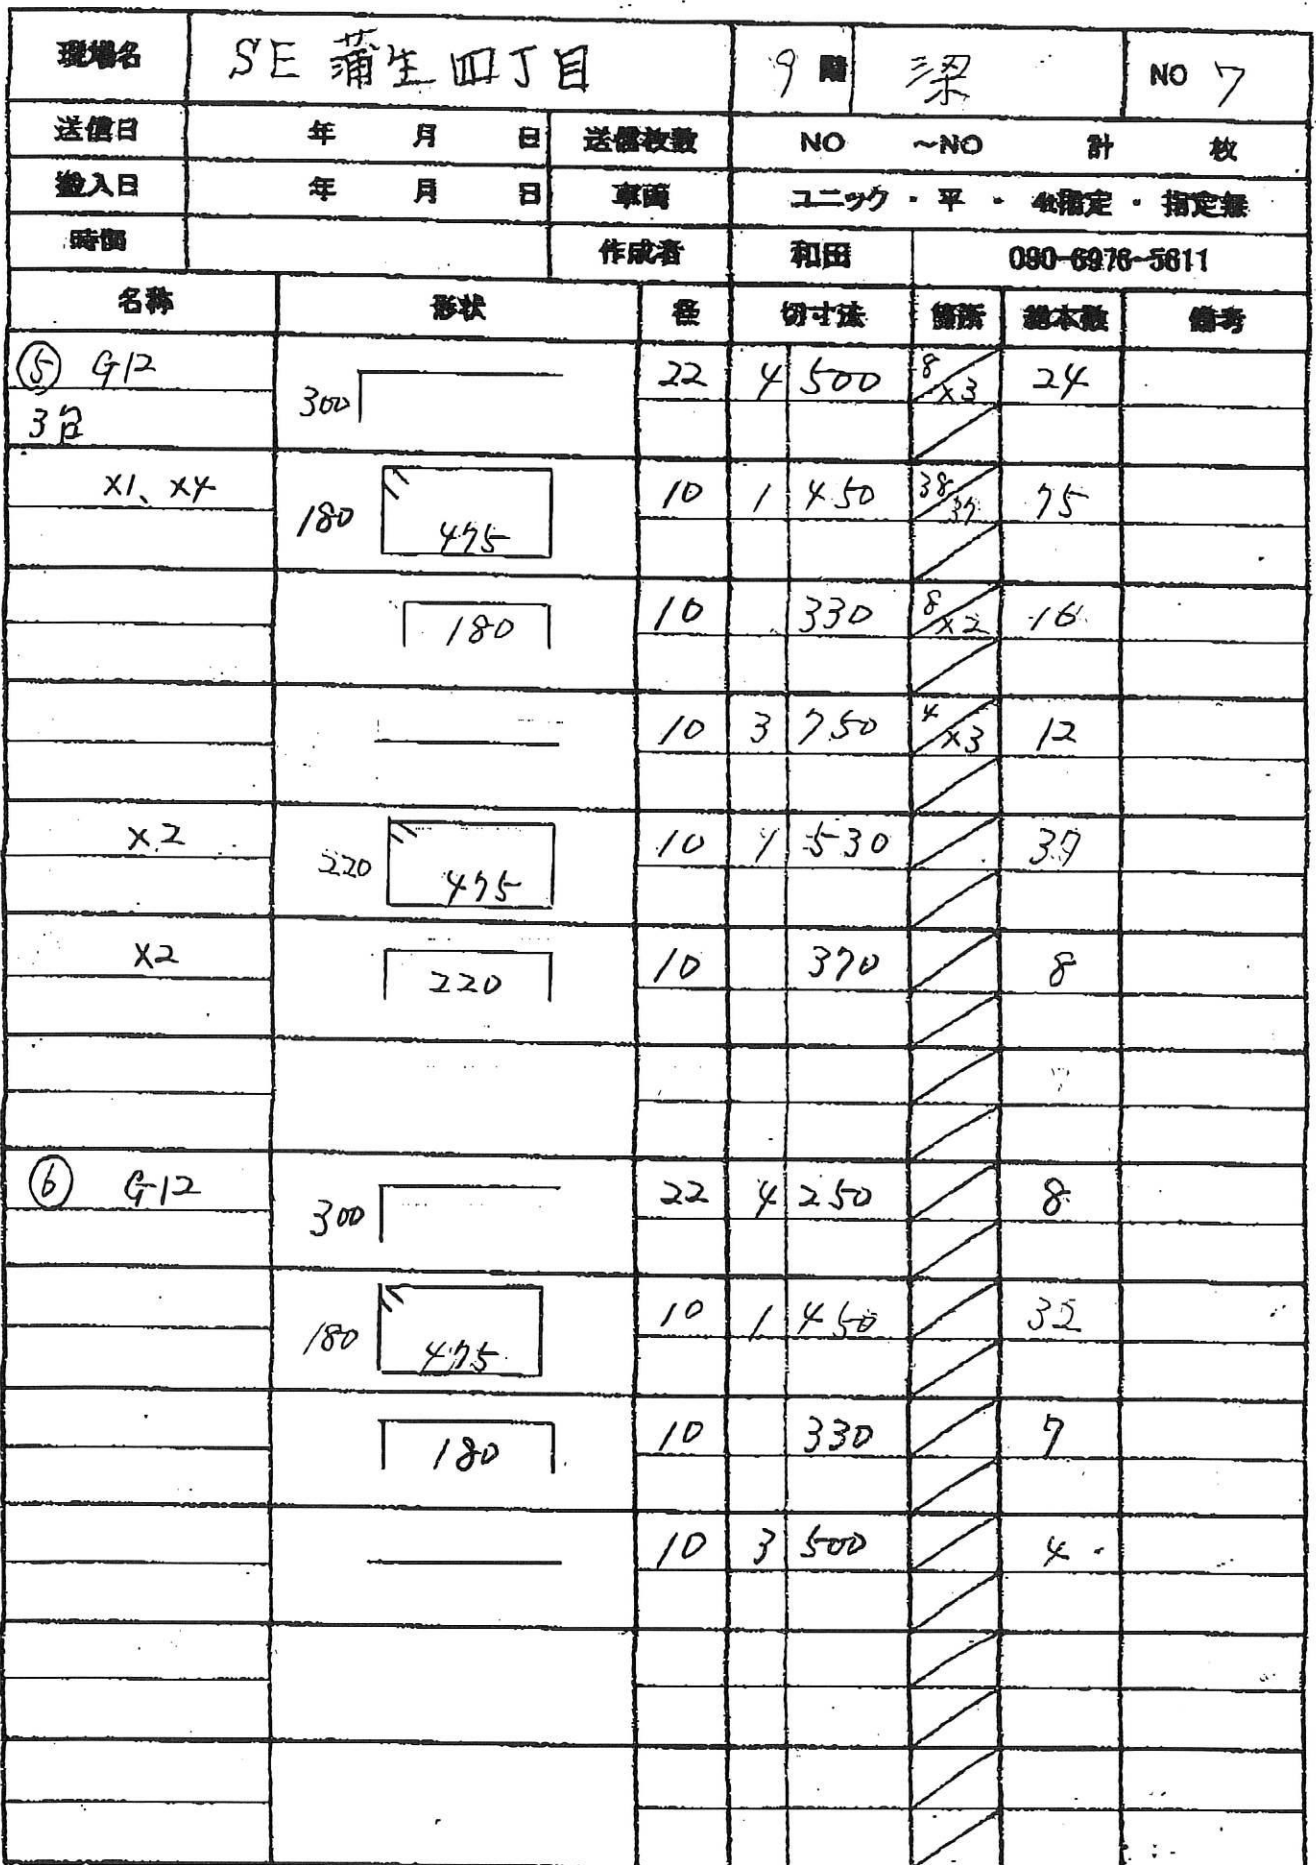 現場名 SE 蒲生四丁目 9 階 梁 NO 7
送信日 年 月 日 送信枚数 NO ～NO 計 枚
搬入日 年 月 日 車両 ユニック・平・4t指定・指定無
時間 作成者 和田 090-6976-5611
名称 形状 径 切寸法 箇所 総本数 備考
⑤ G12 300 22 4 500 8/×3 24
3台
X1、X4 180 475 10 1 450 38/37 75
180 10 330 8/×2 16
10 3 750 4/×3 12
X2 220 475 10 1 530 37
X2 220 10 370 8
⑥ G12 300 22 4 250 8
180 475 10 1 450 35
180 10 330 7
10 3 500 4